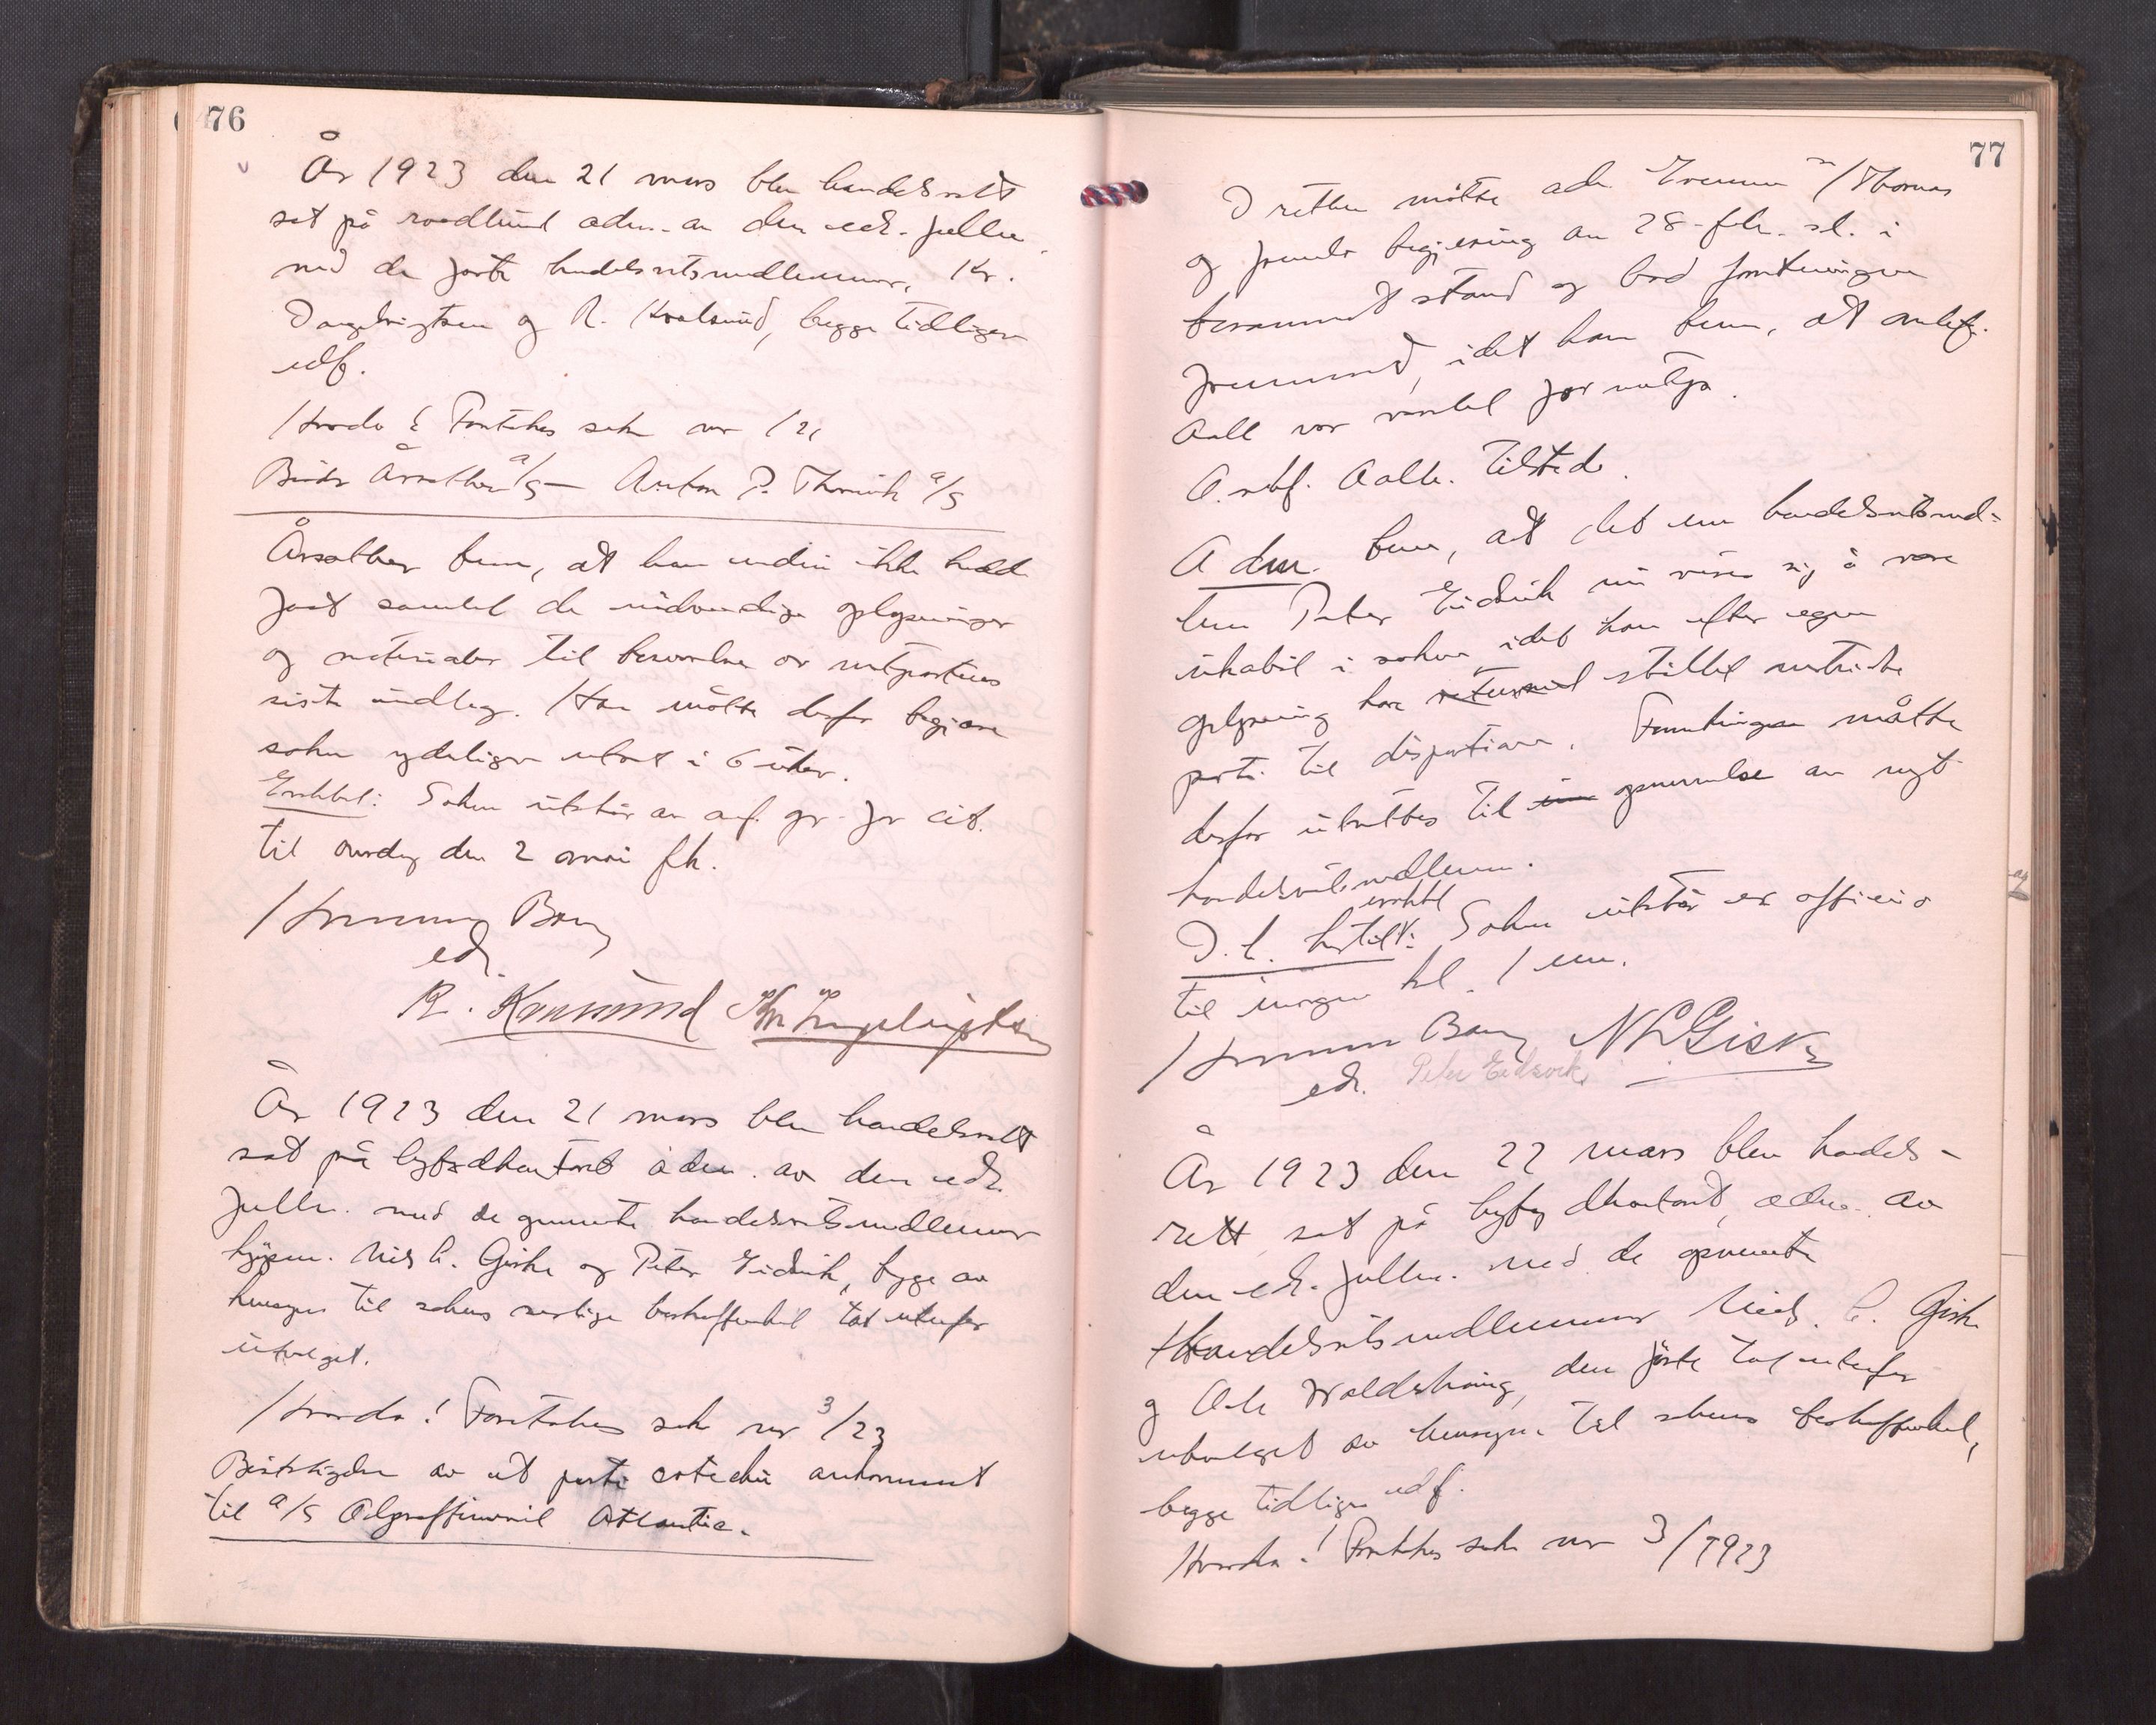 76
År 1923 den 21 mars blev handelsrett
sat på raadhuset adm. av den edr. fullm.
med de faste handelsretsmedlemmer, Kr.
Ingebrigtsen og R. Kvalsund, begge tidligere
edf.
Hvorda! Foretokes sak nr 1/21
Årsæther a/s — Anton P. Thorsvik a/s
Årsæther bem, at han endnu ikke hadde
faat samlet de nødvendige oplysninger
og materialer til besvarelse av motpartens
siste indlæg. Han måtte derfor begjære
saken yderligere utsat i 6 uker.
Enstbesl: Saken utstår av anf. gr. for cit.
til onsdag den 2 mai fk.
Hemming Bang
edr.
R. Kvalsund Kr Ingebrigtsen
År 1923 den 21 mars blev handelsrett
sat på byfogdkontoret adm. av den edr.
fullm. med de opnævnte handelsretsmedlemmer
kjøpm. Nils L. Giske og Peter Eidsvik, begge av
hensyn til sakens særlige beskaffenhet tat utenfor
utvalget.
Hvorda! Foretokes sak nr 3/23
Besiktigelse av et parti sardiner ankommet
til a/s Oljeraffineriet Atlantic.
77
I retten møtte adv. Evensen for Thomas
og freml. begjæring av 28. feb. sl. i
berammet stand og bad forretningen
fremmet, idet han bem, at overrettssf.
Aall var varslet for motp.
O.rsf. Aall tilstede.
Adm. bem, at det ene handelsretsmed-
lem Peter Eidsvik nu viser sig å være
inhabil i saken idet han efter egen
oplysning har stillet omtvistede
parti til disposition. Forretningen måtte
derfor utsættes til opnævnelse av nyt
handelsretsmedlem.
D. e. enstbesl: Saken utstår ex officio
til imorgen kl. 1 em.
Hemming Bang N L Giske
edr. Peter Eidsvik
År 1923 den 22 mars blev handels-
rett sat på byfogdkontoret, adm. av
den edr. fullm. med de opnævnte
Handelsretsmedlemmer Niels L. Giske
og Ole Waldehaug, den første tat utenfor
utvalget av hensyn til sakens beskaffenhet,
begge tidligere edf.
Hvorda! Foretokes sak nr 3/1923